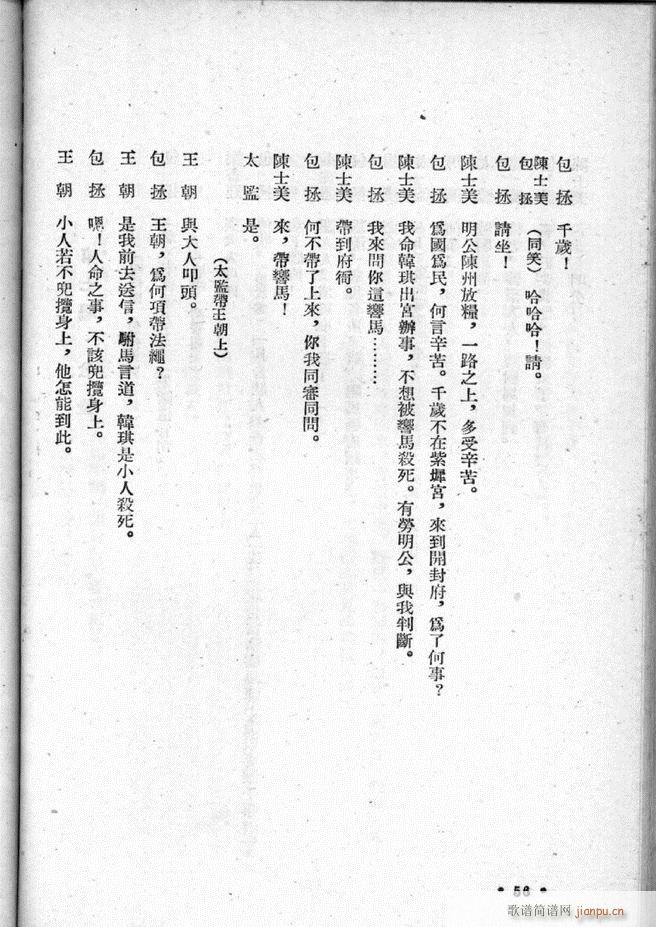 包拯　千歲！
陳士美
包拯　（同笑）哈哈哈！請。
包拯　請坐！
陳士美　明公陳州放糧，一路之上，多受辛苦。
包拯　爲國爲民，何言辛苦。千歲不在紫墀宮，來到開封府，爲了何事？
陳士美　我命韓琪出宮辦事，不想被響馬殺死。有勞明公，與我判斷。
包拯　我來問你這響馬………
陳士美　帶到府衙。
包拯　何不帶了上來，你我同審同問。
陳士美　來，帶響馬！
太監　是。
（太監帶王朝上）
王朝　與大人叩頭。
包拯　王朝，爲何項帶法繩？
王朝　是我前去送信，駙馬言道，韓琪是小人殺死。
包拯　嗯！人命之事，不該兜攬身上。
王朝　小人若不兜攬身上，他怎能到此。
• 56 •
歌谱简谱网
jianpu.cn